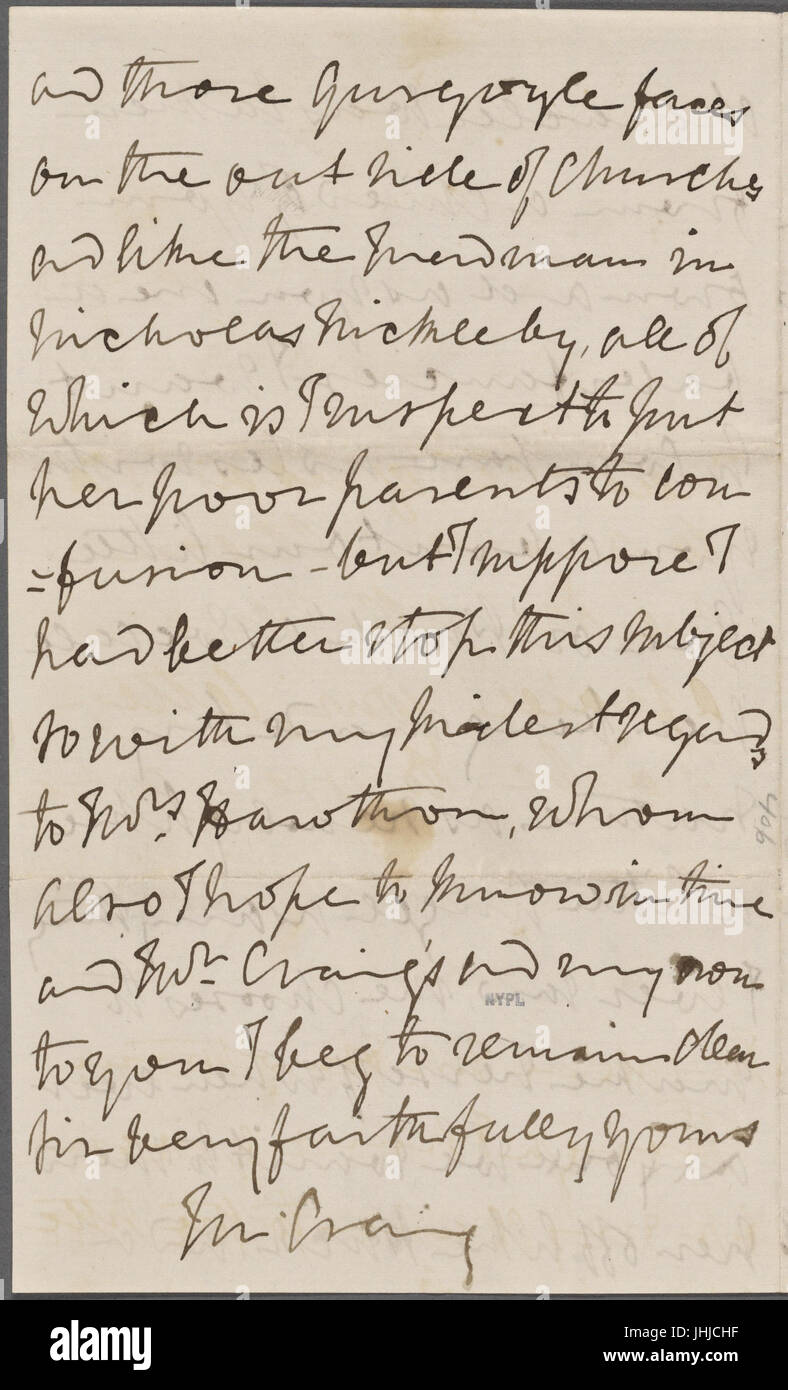 and those gurgoyle faces
on the outside of Churches
and like the Mad man in
Nicholas Nickleby, all of
which is I suspect to put
her poor parents to con
=fusion - but I suppose I
had better stop this subject
so with my kindest regards
to Mrs. Hawthorn, whom
also I hope to know in time
and Mr. Craig's and my own
to you I beg to remain dear
Sir very faithfully yours
Craig
906
NYPL
alamy
Image ID: JHJCHF
www.alamy.com